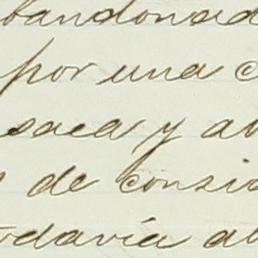 bandonad
por una c
saca y ab
de consid
todavía al